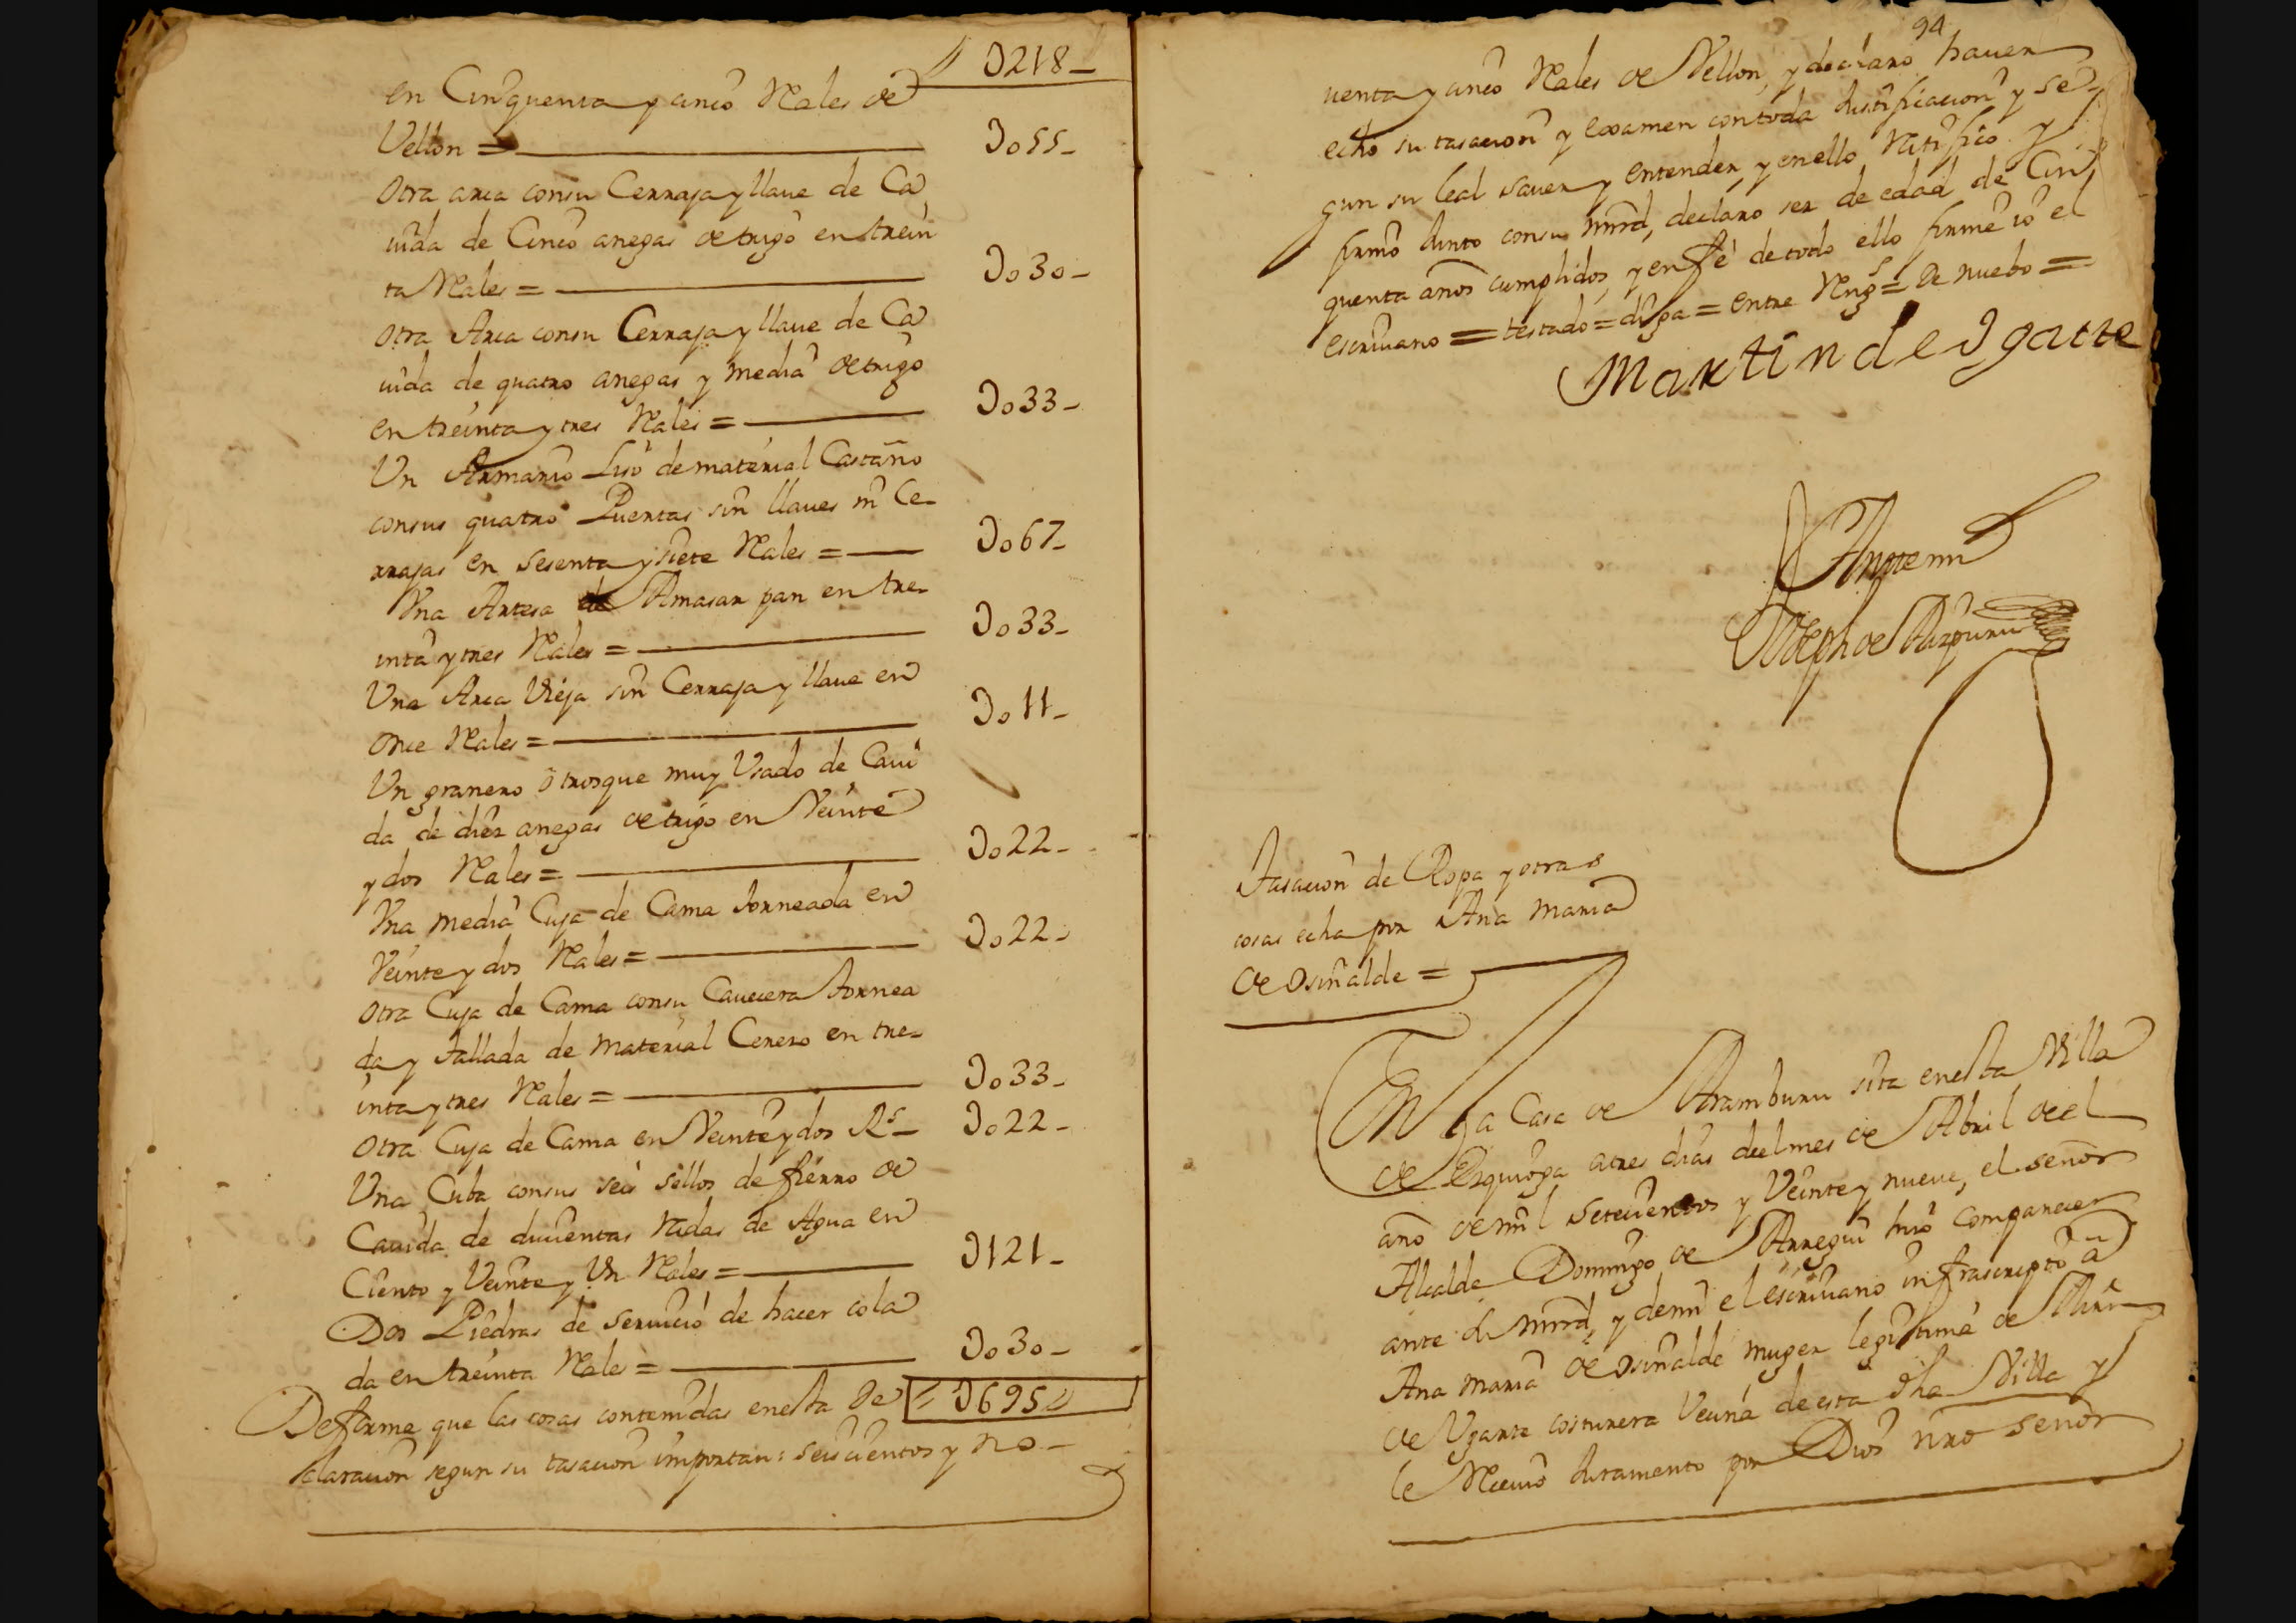 D218_
en Cinquenta y cinco Rales de
Vellon = D055_
otra arca consu Cerraja y llaue de Ca
uida de Cinco anegas de trigo en trein
ta Rales = D030_
otra Arca consu Cerraja y llaue de Ca
uida de quatro anegas y media de trigo
en treinta y tres Rales = D033_
Un Armario Liso de material Castaño
consus quatro Puertas sin llaues ni Ce_
rrajas en sesenta y siete Rales = D067_
Una Artesa de Amasar pan en tre_
inta y tres Rales = D033_
Una Arca Vieja sin Cerraja y llaue en
once Rales = D011_
Un granero o trosque muy Usado de Caui
da de diez anegas de trigo en Veinte
y dos Rales = D022_
Una media Cuja de Cama torneada en
Veinte y dos Rales = D022_
otra Cuja de Cama consu Cauecera tornea
da y tallada de material Cerezo en tre_
inta y tres Rales = D033_
otra Cuja de Cama en Veinte y dos Rs_ D022_
Una Cuba consus seis sellos de fierro de
Cauida de ducientas Radas de Agua en
Ciento y Veinte y Un Rales = D121_
Dos Piedras de seruicio de hacer cola
da en treinta Rales = D030_
De forma que las cosas contenidas en esta De D695
claracion segun su tasacion importan: seiscientos y no_
94
uenta y cinco Rales de Vellon, y declaro hauer
echo su tasacion y examen contoda Justificacion y se_
gun su leal sauer y entender, y en ello Ratifico y
firmo Junto consu mrd, declaro ser de edad de Cin
quenta años cumplidos, y en fe de todo ello firme io el
escriuano = testado = diga = entre Rngs = De nuebo =
Martin de Igartte
Antemi
Joseph de Aizpuru
Tasacion de Ropa y otras
cosas echa por Ana Maria
de Osiñalde =
En La Casa de Aramburu sita en esta Villa
de Ezquioga a tres dias del mes de Abril de el
año de mil setecientos y Veinte y nueue, el señor
Alcalde Domingo de Arregui hizo comparecer
ante si mrd, y de mi el escriuano infrascripto a
Ana Maria de Osiñalde muger legitima de Mrn
de Ygarte costurera Vecina de esta dha Villa y
le Reciuio Juramento por Dios nro señor